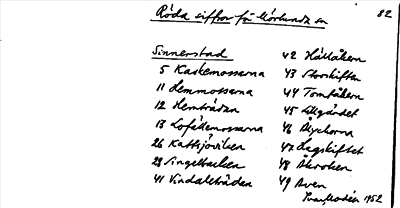 Röda siffror för Mörlunda sn
82
Sinnerstad
5 Kaskemossarna
11 Hemmossarna
12 Hemträdan
13 Lofällemossarna
26 Kattsjöviken
29 Singelbacken
41 Vindaleträdan
42 Håltåkern
43 Storskiften
44 Tomtåkern
45 Lillgärdet
46 Älychorna
47 Lagskiftet
48 Åkroken
49 Aven
1952